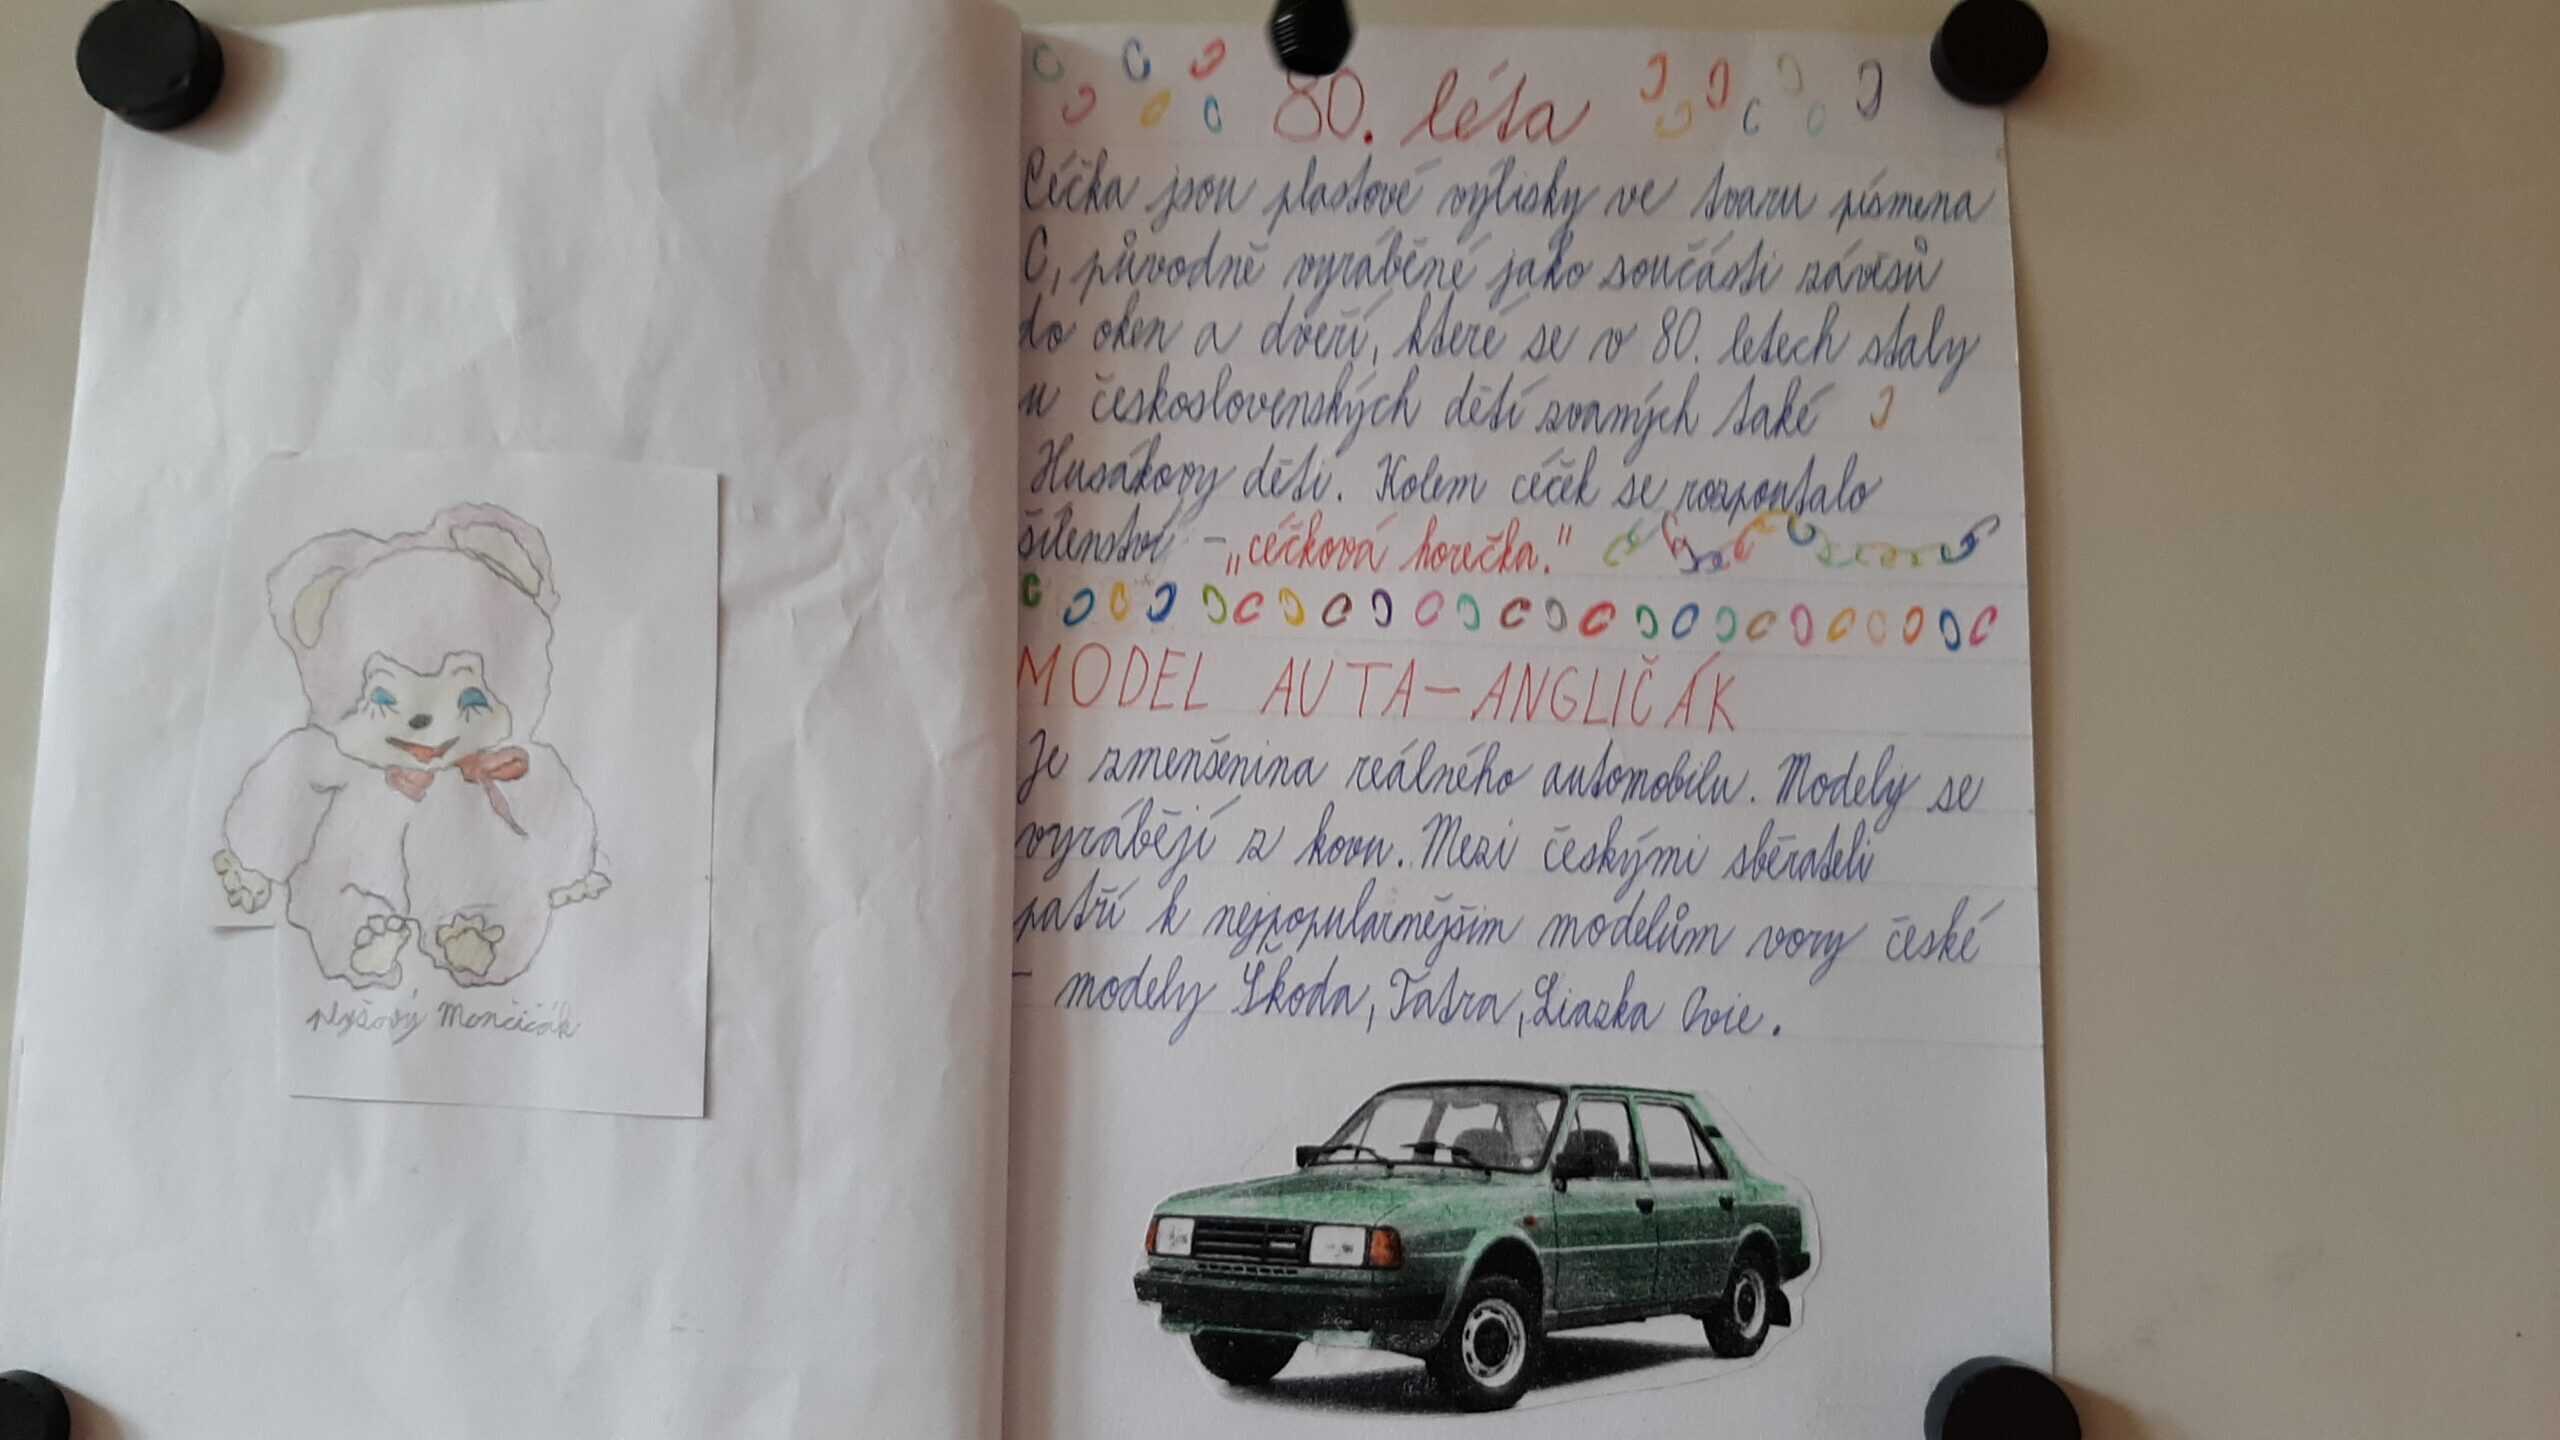 plyšový Mončičák
80. léta
Céčka jsou plastové výlisky ve tvaru písmena
C, původně vyráběné jako součásti závěsů
do oken a dveří, které se v 80. letech staly
u československých dětí zvaných také
Husákovy děti. Kolem céček se rozpoutalo
šílenství - „céčková horečka."
MODEL AUTA - ANGLIČÁK
Je zmenšenina reálného automobilu. Modely se
vyrábějí z kovu. Mezi českými sběrateli
patří k nejpopulárnějším modelům vozy české
- modely Škoda, Tatra, Liazka Avie.